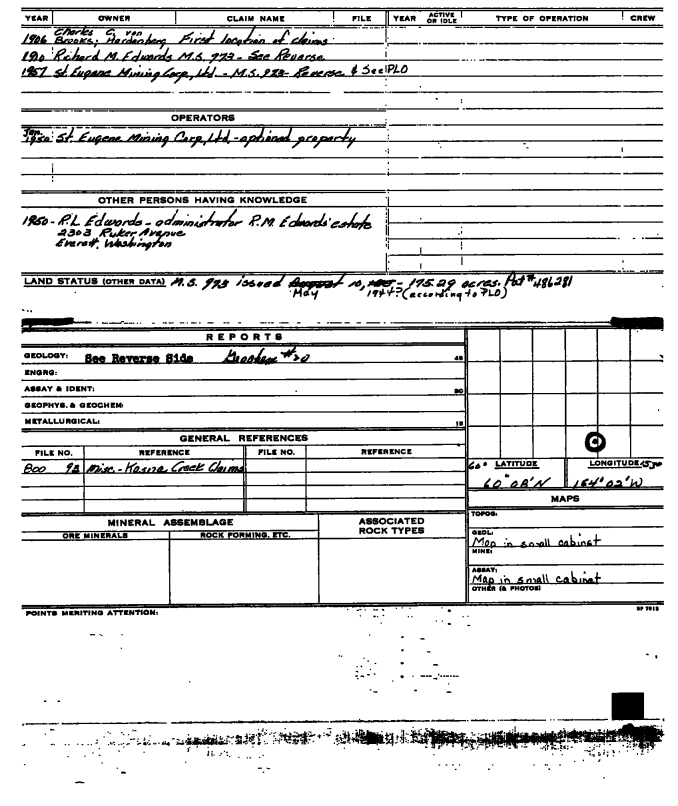 YEAR OWNER CLAIM NAME FILE YEAR ACTIVE OR IDLE TYPE OF OPERATION CREW
Charles G. von
1906 Brooks; Hardenberg First location of claims
1910 Richard M. Edwards M.S. 923 - See Reverse
1957 St. Eugene Mining Corp., Ltd. - M.S. 923 - Reverse & See PLO
OPERATORS
Jan.
1950: St. Eugene Mining Corp, Ltd. - optioned property
OTHER PERSONS HAVING KNOWLEDGE
1950 - R.L Edwards - administrator R.M. Edwards' estate
2303 Ruker Avenue
Everett, Washington
LAND STATUS (OTHER DATA) M.S. 923 issued August 10, - 175.29 acres. Pat # 486281
May 1944? (according to PLO)
REPORTS
GEOLOGY: See Reverse Side Geochem #20 45
ENGRG:
ASSAY & IDENT: 30
GEOPHYS. & GEOCHEM:
METALLURGICAL: 15
GENERAL REFERENCES
FILE NO. REFERENCE FILE NO. REFERENCE
800 93 Misc. - Kasna Creek Claims
60° LATITUDE LONGITUDE 153°
60° 08' N 154° 02' W
MAPS
TOPOG:
GEOL:
Map in small cabinet
MINE:
ASSAY:
Map in small cabinet
OTHER (& PHOTOS)
MINERAL ASSEMBLAGE ASSOCIATED ROCK TYPES
ORE MINERALS ROCK FORMING, ETC.
POINTS MERITING ATTENTION: